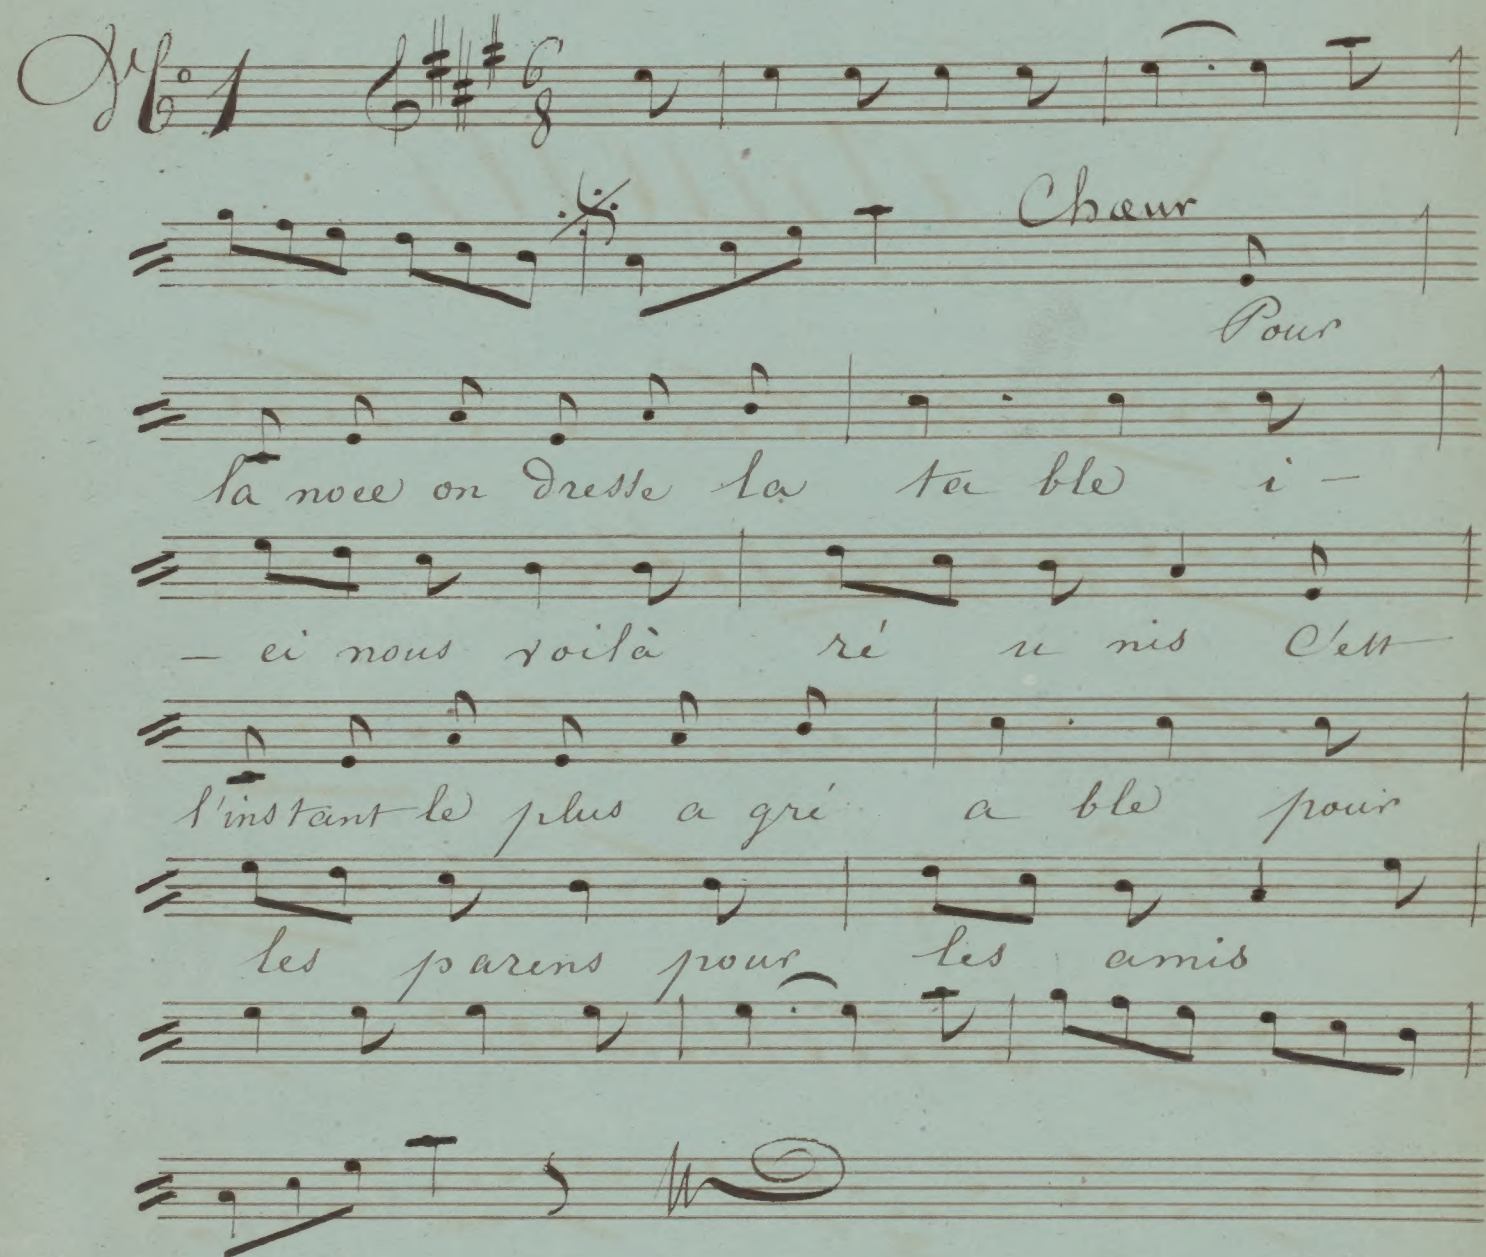 N° 1 6/8
Chœur
Pour
la noce on dresse la ta ble i -
- ci nous voilà ré u nis C'est
l'instant le plus a gré a ble pour
les parens pour les amis